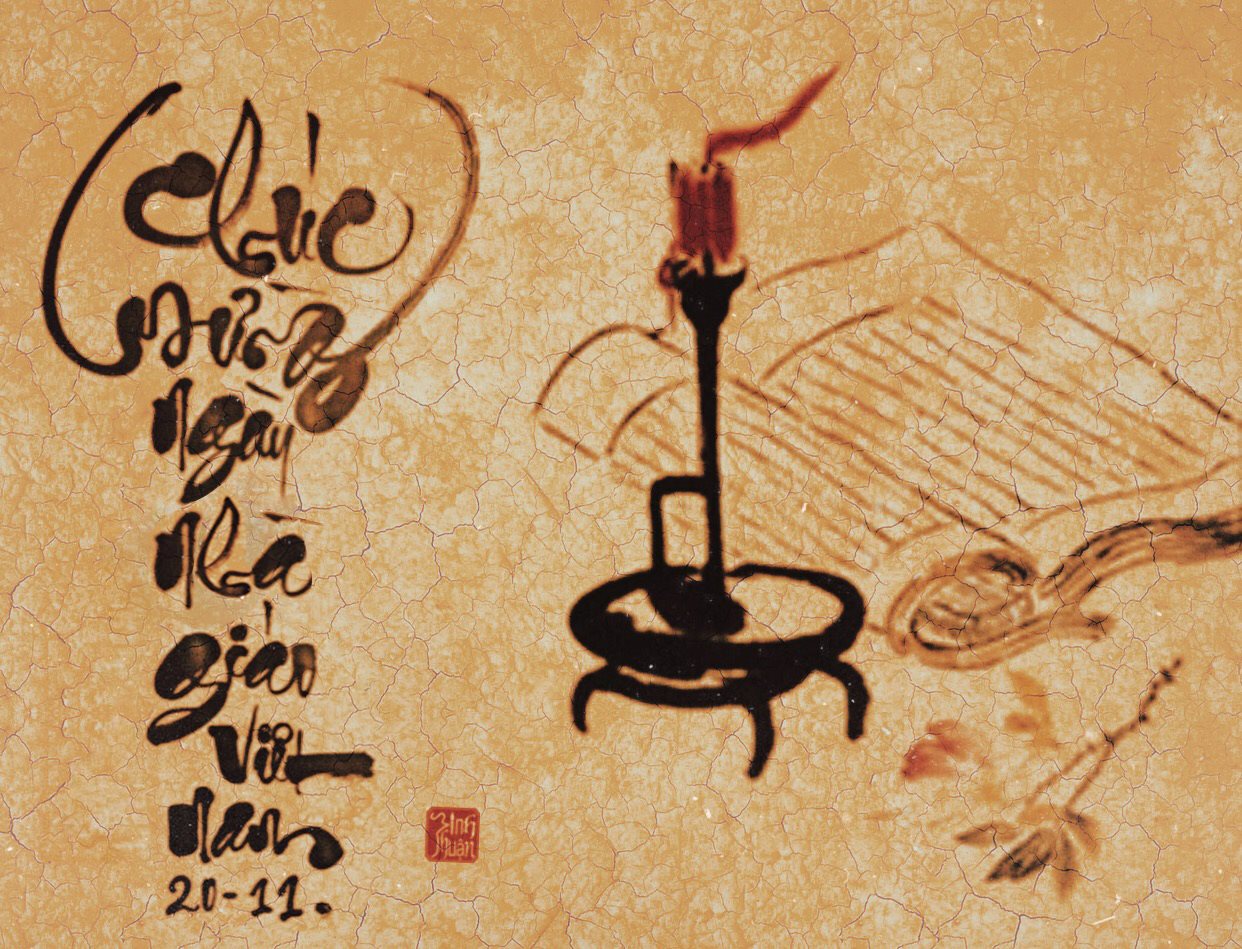 Chúc
mừng
ngày
Nhà
giáo
Việt
Nam
20-11.